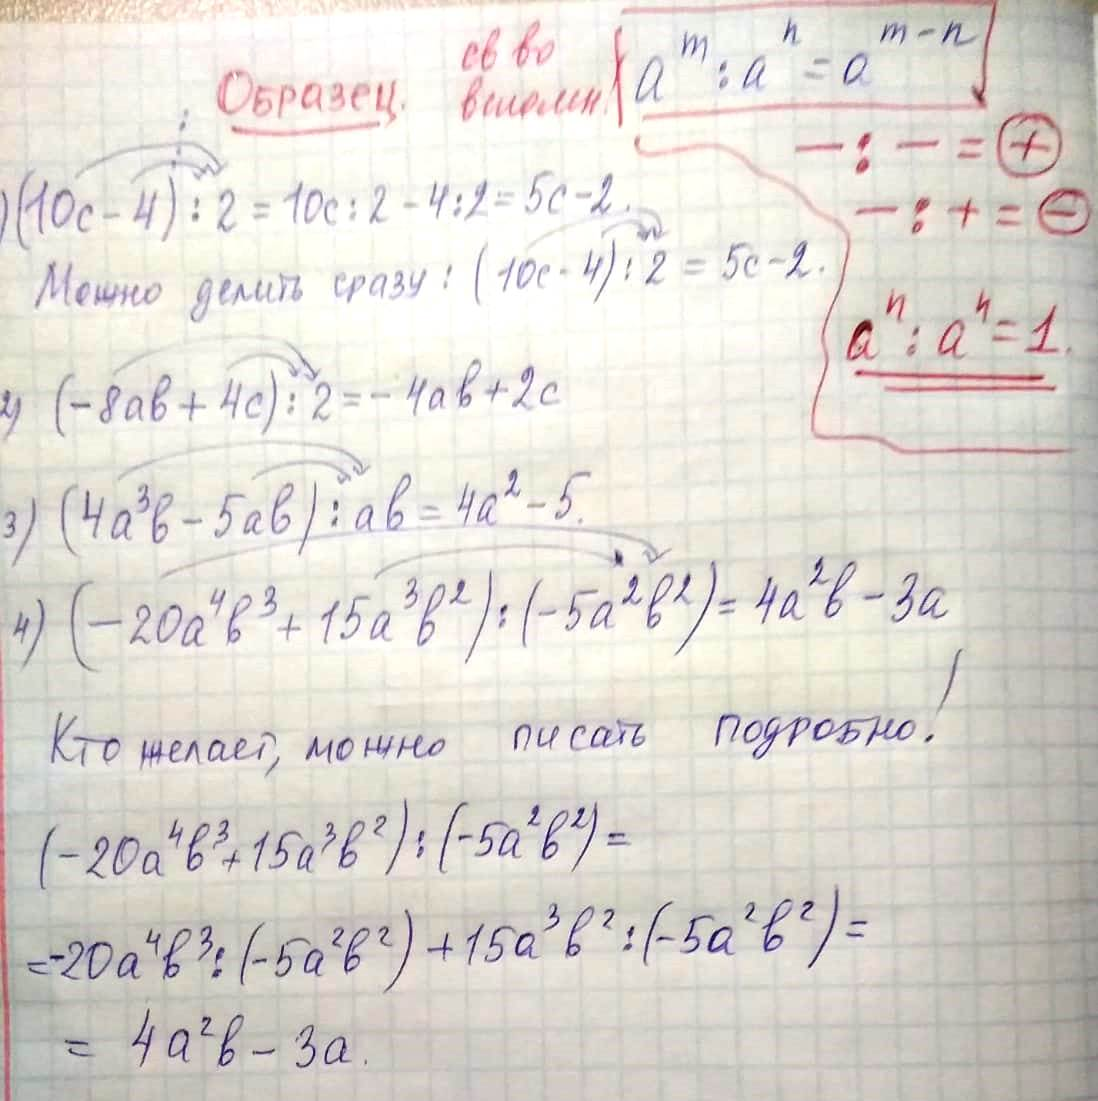 Образец.
св во
вспомн.
a^m : a^n = a^{m-n}
− : − = ⊕
− : + = ⊖
a^n : a^n = 1.
:
) (10c − 4) : 2 = 10c : 2 − 4 : 2 = 5c − 2.
Можно делить сразу : (10c − 4) : 2 = 5c − 2.
2) (−8ab + 4c) : 2 = −4ab + 2c
3) (4a³b − 5ab) : ab = 4a² − 5.
4) (−20a⁴b³ + 15a³b²) : (−5a²b²) = 4a²b − 3a
Кто желает, можно писать подробно!
(−20a⁴b³ + 15a³b²) : (−5a²b²) =
= −20a⁴b³ : (−5a²b²) + 15a³b² : (−5a²b²) =
= 4a²b − 3a.